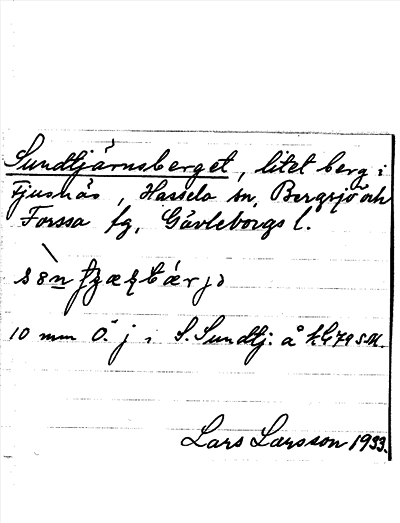 Sundtjärnsberget, litet berg i
Fjusnäs, Hassela sn, Bergsjö och
Forssa fg, Gävleborgs l.
10 mm Ö. j i S. Sundtj. å kbl 79 S.M.
Lars Larsson 1933.